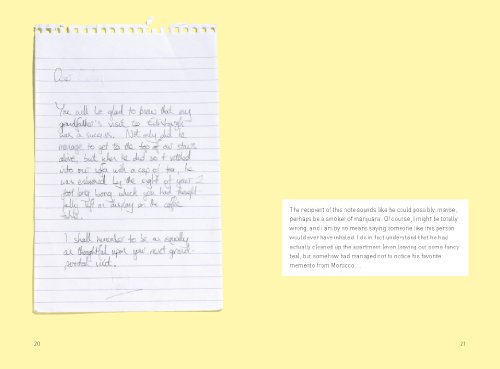 Dear
You will be glad to know that my
grandfather's visit to Edinburgh
was a success. Not only did he
manage to get to the top of our stairs
alive, but when he did so & settled
into our sofa with a cup of tea, he
was enlivened by the sight of your 2
foot long bong which you had thought-
fully left on display on the coffee
table.
I shall remember to be as equally
as thoughtful upon your next grand-
parental visit.
The recipient of this note sounds like he could possibly, maybe,
perhaps be a smoker of marijuana. Of course, I might be totally
wrong, and I am by no means saying someone like this person
would ever have inhaled. I do in fact understand that he had
actually cleaned up the apartment (even leaving out some fancy
tea), but somehow had managed not to notice his favorite
memento from Morocco . . .
20
21